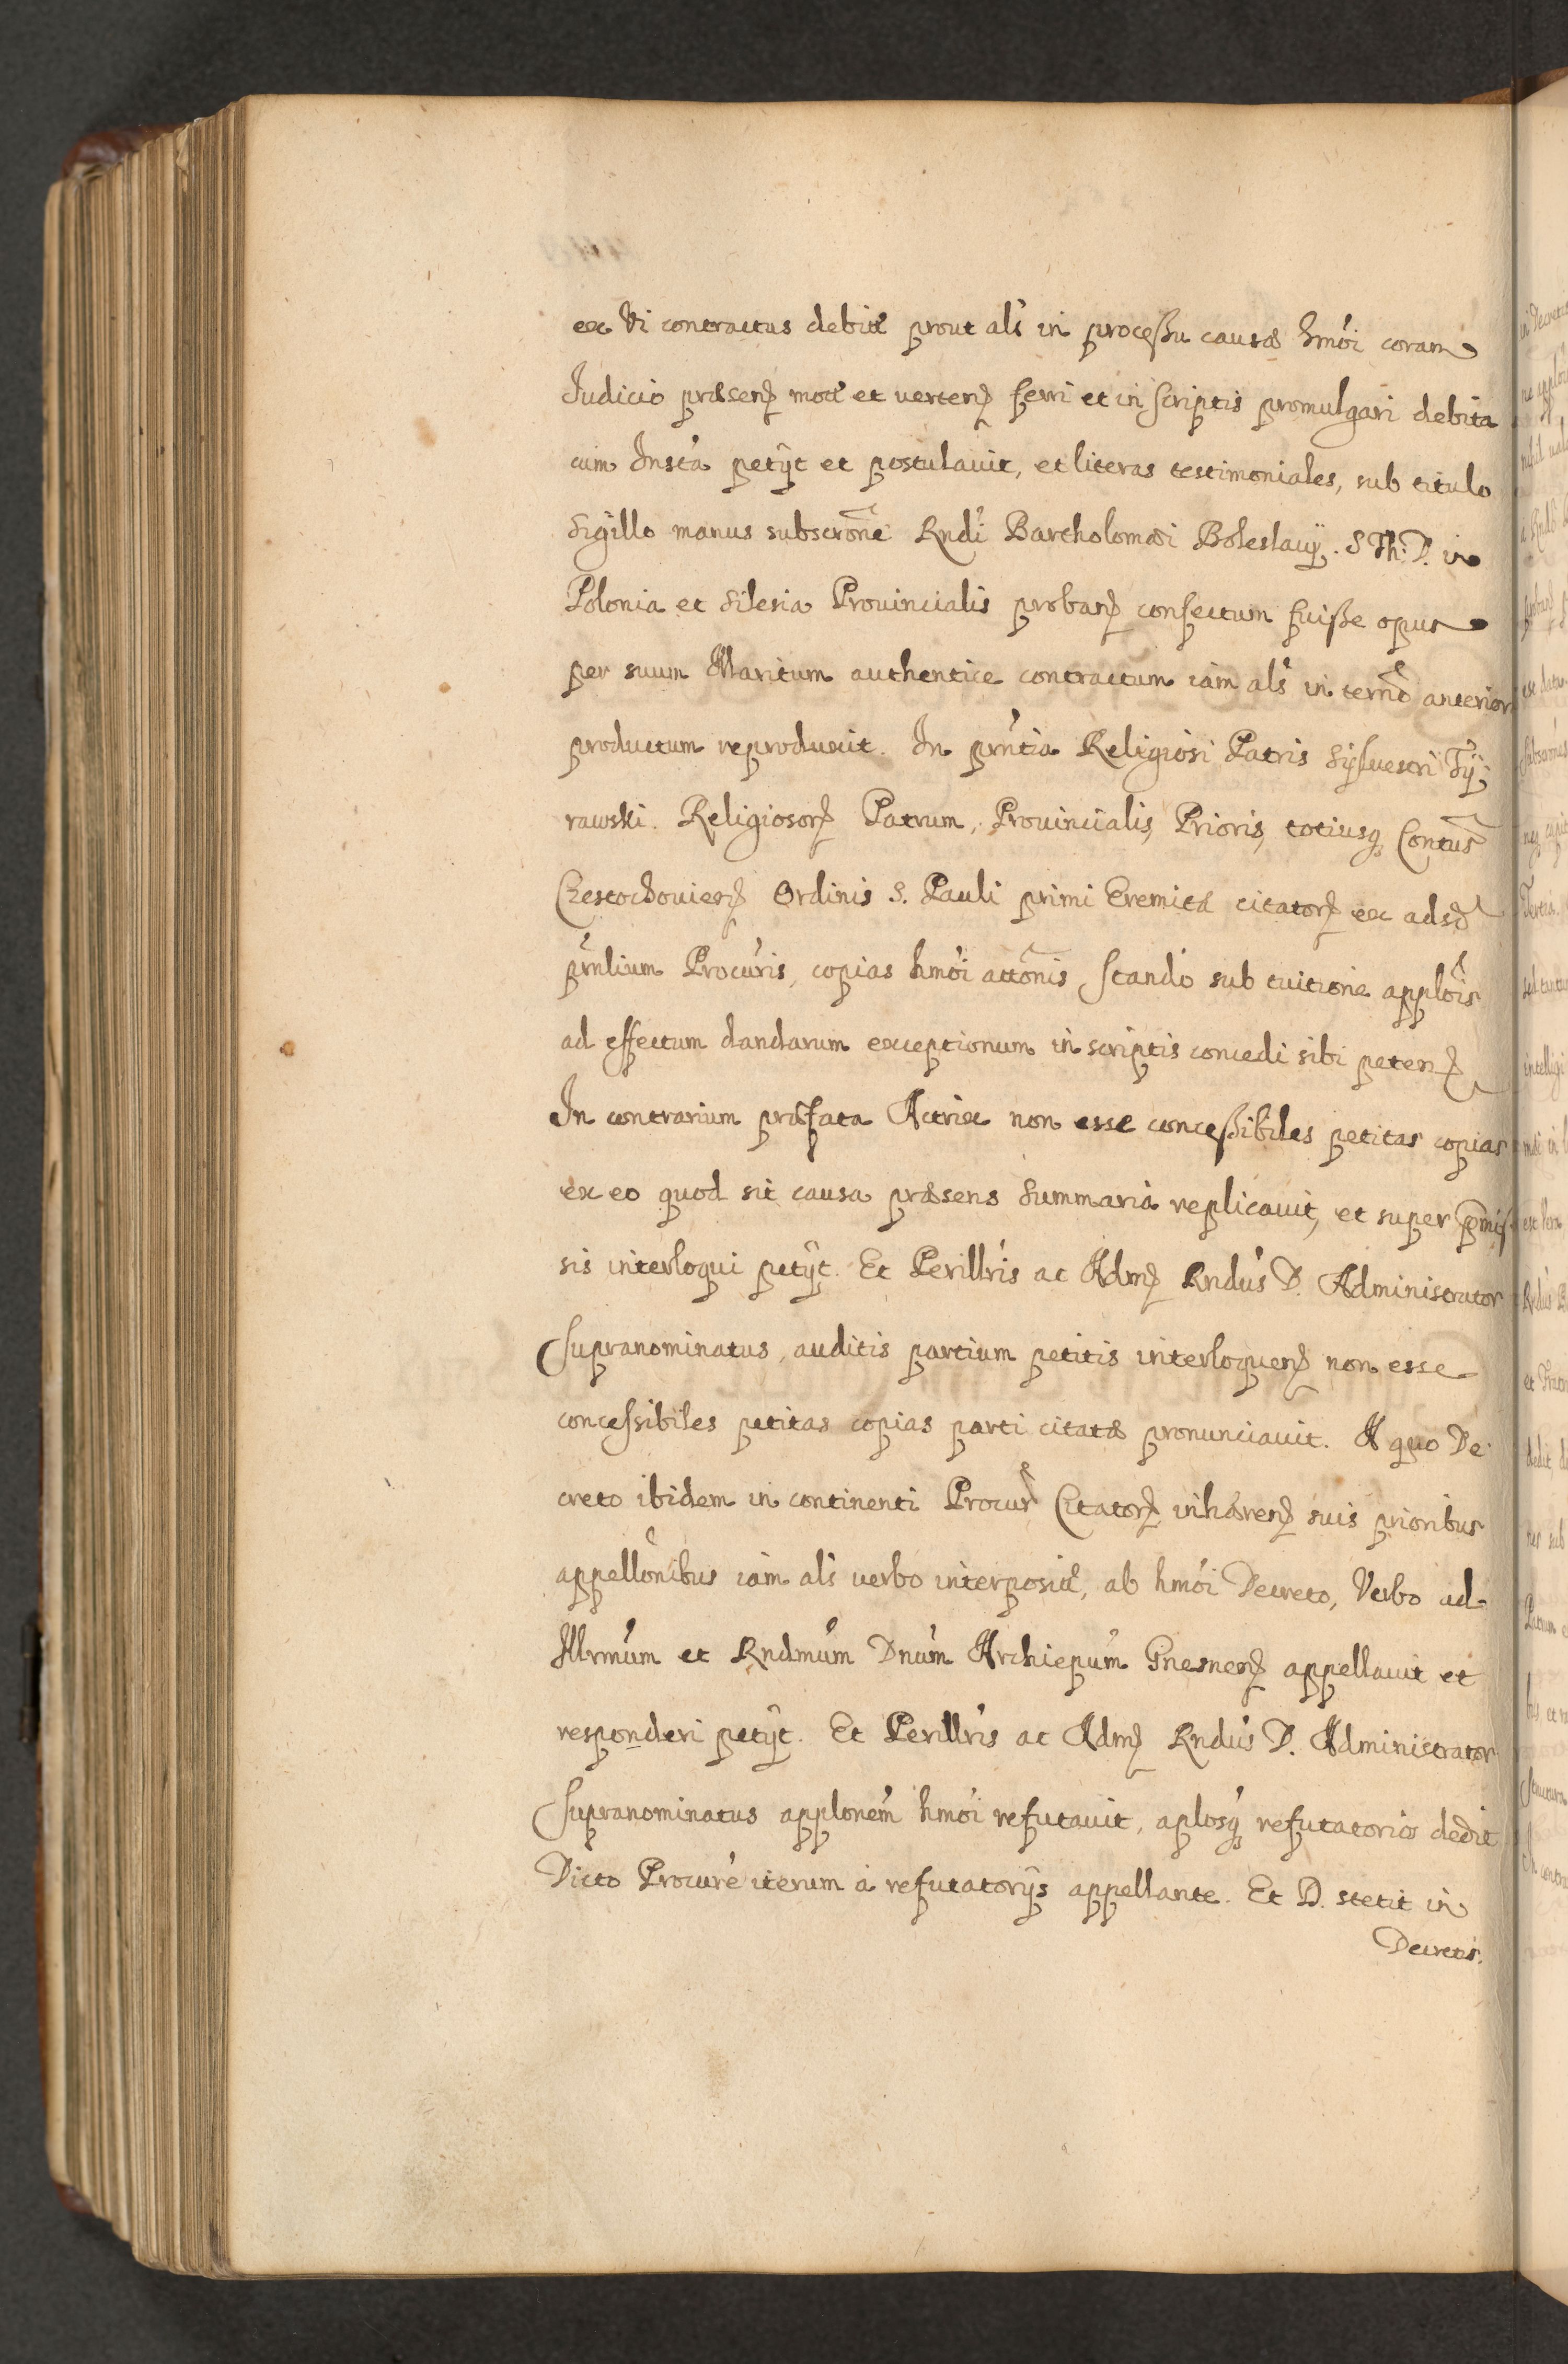 ex Vi contractus debitæ prout als in processu causæ hmoi coram
Iudicio præsenʒ motæ et vertenʒ ferri et in scriptis promulgari debita
cum Insta petÿt et postulauit, et literas testimoniales, sub titulo
Sigillo manus subscrone Rndi Bartholomæi Boleslauÿ. S Th: D. in
Polonia et Silesia Prouincialis probanʒ confectum fuisse opus
per suum Maritum authentice contractum iam als in termo anterior
productum reproduxit. In prntia Religiosi Patris Sÿluestri Tÿ:
rawski. Religiosorʒ Patrum, Prouincialis, Prioris, totiusqʒ Contus
Czestochouienʒ Ordinis S. Pauli primi Eremitæ citatorʒ ex adso
prnlium Procuris, copias hmoi attonis stando sub tuitione applois
ad effectum dandarum exceptionum in scriptis concedi sibi petenʒ
In contrarium præfata Actrix non esse concessibiles petitas copias
ex eo quod sit causa præsens Summaria replicauit, et super pmis
sis interloqui petÿt. Et Perillris ac Admʒ Rndus D. Administrator
Supranominatus, auditis partium petitis interloquenʒ non esse
concessibiles petitas copias parti citatæ pronunciauit. A quo De
creto ibidem in continenti Procur Citatorʒ inhærenʒ suis prioribus
appellonibus iam als verbo interpositæ, ab hmoi Decreto, Verbo ad
Illrmum et Rndmum Dnum Archiepum Gnesnenʒ appellauit et
responderi petÿt. Et Perillris ac Admʒ Rndus D. Administrator
Supranominatus applonem hmoi refutauit, aplosqʒ refutatorios dedit
Dicto Procure iterum à refutatorÿs appellante. Et D. stetit in
Decretis.